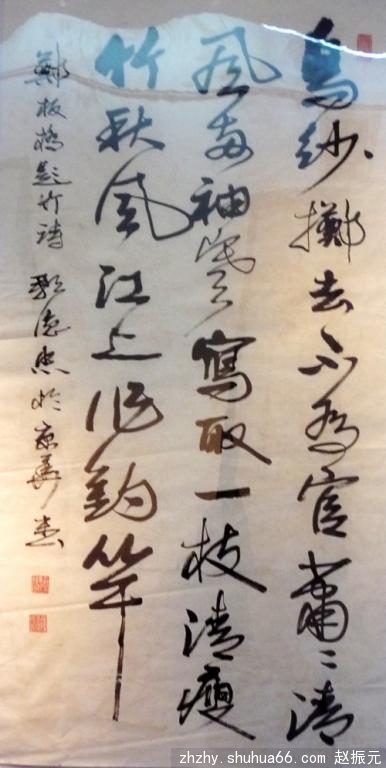 烏紗擲去不為官蕭〻清
風兩袖寒寫取一枝清瘦
竹秋風江上作釣竿
鄭板橋題竹詩 於京華書
zhzhy.shuhua66.com 赵振元